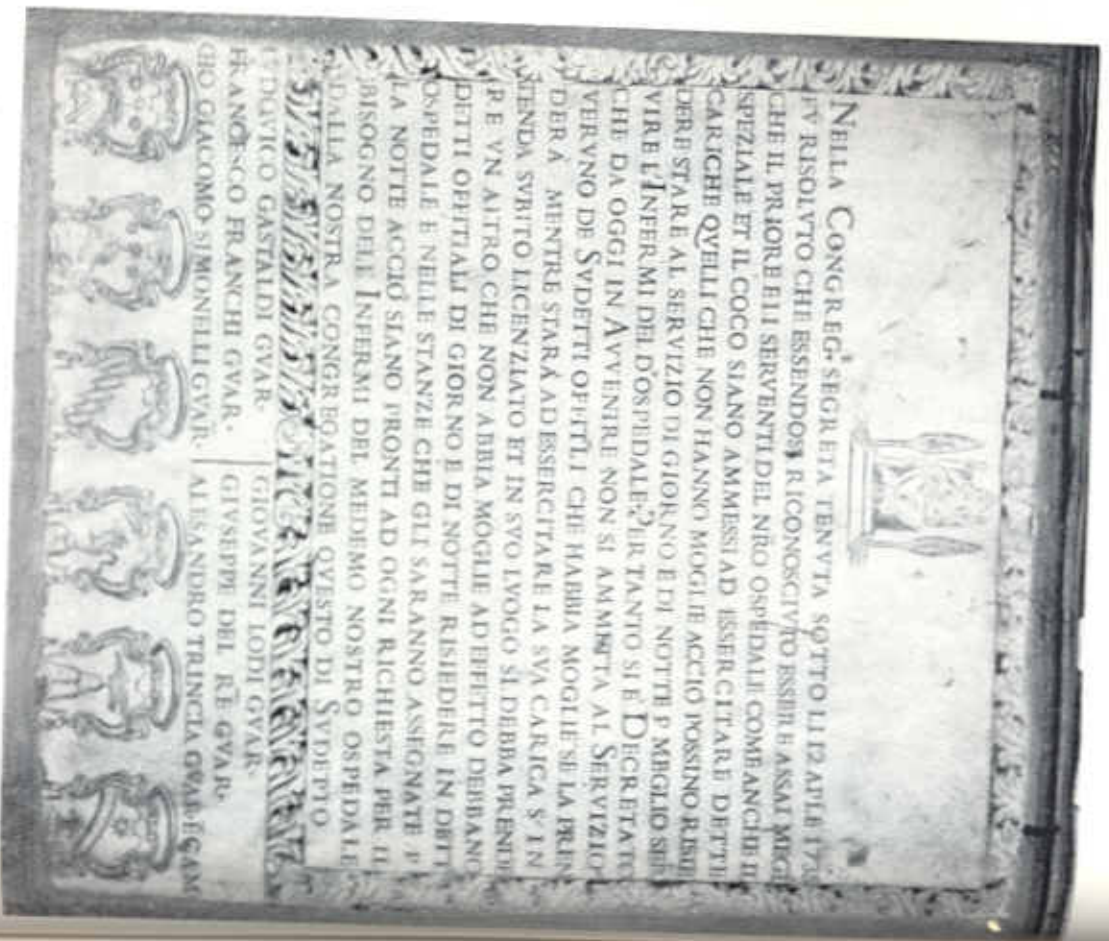 NELLA CONGREG.ª SEGRETA TENVTA SOTTO LI 12 APLE 173
FV RISOLVTO CHE ESSENDOSI RICONOSCIVTO ESSERE ASSAI MEGL
CHE IL PRIORE E LI SERVENTI DEL NRO OSPEDALE COME ANCHE IL
SPEZIALE ET IL COCO SIANO AMMESSI AD ESSERCITARE DETTE
CARICHE QVELLI CHE NON HANNO MOGLIE ACCIÒ POSSINO RISIE
DERE STARE AL SERVIZIO DI GIORNO E DI NOTTE P MEGLIO SER
VIRE L'INFERMI DEL D'OSPEDALE: PER TANTO SI È DECRETATO
CHE DA OGGI IN AVVENIRE NON SI AMMETTA AL SERVIZIO
VERVNO DE SVDETTI OFFITLI CHE HABBI MOGLIE SE LA PREN
DERÀ MENTRE STARÀ AD ESSERCITARE LA SVA CARICA S'IN
TENDA SVBITO LICENZIATO ET IN SVO LVOGO SI DEBBA PRENDE
RE VN ALTRO CHE NON ABBIA MOGLIE AD EFFETTO DEBBANO
DETTI OFFITIALI DI GIORNO E DI NOTTE RISIEDERE IN DETT
OSPEDALE E NELLE STANZE CHE GLI SARANNO ASSEGNATE P
LA NOTTE ACCIÒ SIANO PRONTI AD OGNI RICHIESTA PER IL
BISOGNO DELE INFERMI DEL MEDEMO NOSTRO OSPEDALE
DALLA NOSTRA CONGREGATIONE QVESTO DI SVDETTO
LVDOVICO GASTALDI GVAR. GIOVANNI LODI GVAR.
FRANCESCO FRANCHI GVAR. GIVSEPPE DEL RÈ GVAR.
GIO GIACOMO SIMONELLI GVAR. ALESANDRO TRINCIA GVAR E CAM